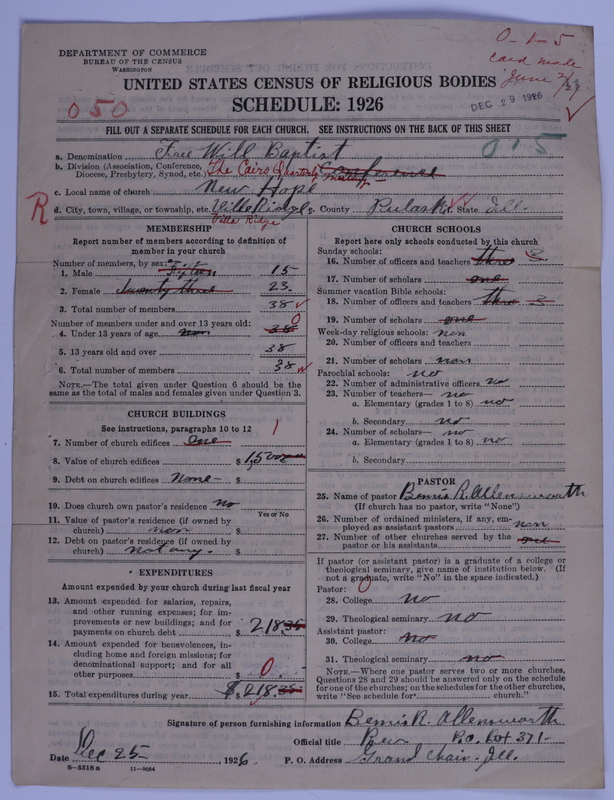 DEPARTMENT OF COMMERCE
BUREAU OF THE CENSUS
WASHINGTON
0-1-5
card made
June 2/27
UNITED STATES CENSUS OF RELIGIOUS BODIES
DEC 29 1926
050
SCHEDULE: 1926
FILL OUT A SEPARATE SCHEDULE FOR EACH CHURCH. SEE INSTRUCTIONS ON THE BACK OF THIS SHEET
015
a. Denomination Free Will Baptist
b. Division (Association, Conference, Diocese, Presbytery, Synod, etc.) The Cairo Quarterly Meeting Conference
c. Local name of church New Hope
R
d. City, town, village, or township, etc. Ville Ridge County Pulaski State Ill.
Villa Ridge
MEMBERSHIP
Report number of members according to definition of
member in your church
Number of members, by sex:
1. Male Fifteen 15
2. Female Twenty three 23
3. Total number of members 38
Number of members under and over 13 years old:
4. Under 13 years of age non 38 0
5. 13 years old and over 38
6. Total number of members 38
NOTE.—The total given under Question 6 should be
same as the total of males and females given under Question 3.
CHURCH BUILDINGS
See instructions, paragraphs 10 to 12
7. Number of church edifices One 1
8. Value of church edifices $ 1,500
9. Debt on church edifices None $
10. Does church own pastor's residence no
Yes or No
11. Value of pastor's residence (if owned by
church) non $
12. Debt on pastor's residence (if owned by
church) not any. $
EXPENDITURES
Amount expended by your church during last fiscal year
13. Amount expended for salaries, repairs,
and other running expenses; for improvements or new buildings; and for
payments on church debt $ 218.35
14. Amount expended for benevolences, including home and foreign missions; for
denominational support; and for all
other purposes $ 0
15. Total expenditures during year $ 218.35
CHURCH SCHOOLS
Report here only schools conducted by this church
Sunday schools:
16. Number of officers and teachers three 3
17. Number of scholars one
Summer vacation Bible schools:
18. Number of officers and teachers three 3
19. Number of scholars one
Week-day religious schools: non
20. Number of officers and teachers
21. Number of scholars non
Parochial schools: no
22. Number of administrative officers no
23. Number of teachers— no
a. Elementary (grades 1 to 8) no
b. Secondary no
24. Number of scholars— no
a. Elementary (grades 1 to 8) no
b. Secondary
PASTOR
25. Name of pastor Bennis R. Allensworth
(If church has no pastor, write "None")
26. Number of ordained ministers, if any, employed as assistant pastors non
27. Number of other churches served by the
pastor or his assistants one
If pastor (or assistant pastor) is a graduate of a college or
theological seminary, give name of institution below. (If
not a graduate, write "No" in the space indicated.)
Pastor: 0
28. College no
29. Theological seminary no
Assistant pastor:
30. College no
31. Theological seminary no
NOTE.—Where one pastor serves two or more churches,
Questions 28 and 29 should be answered only on the schedule
for one of the churches; on the schedules for the other churches,
write "See schedule for church."
Signature of person furnishing information Bennis R. Allensworth
Official title Rev P.O. Box 371-
Date Dec 25- , 1926. P. O. Address Grand Chain. Ill.
8—5518 a 11—9034